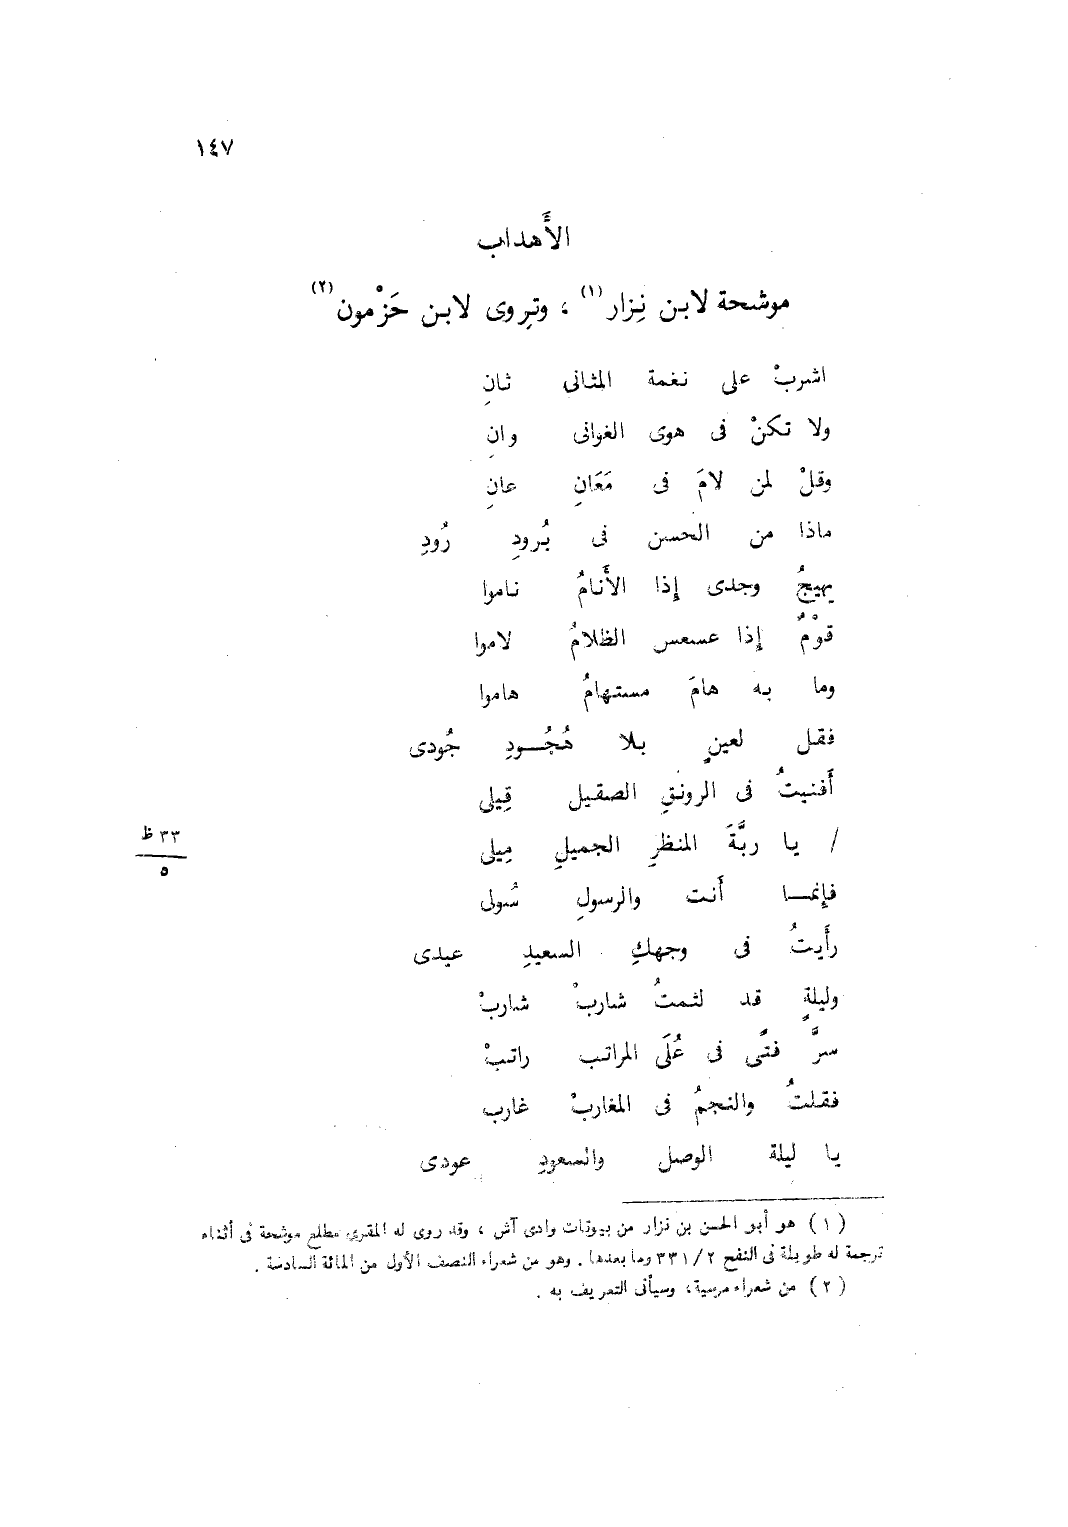 ١٤٧
الأَهداب
موشحة لابن نِزار (١) ، وتروى لابن حَزْمون (٢)
اشربْ على نغمة المثانى ثانِ
ولا تكنْ فى هوى الغوانى وانِ
وقلْ لمن لامَ فى مَعَانٍ عانِ
ماذا من الحسن فى بُرودِ رُودِ
يهيجُ وجدى إِذا الأَنامُ ناموا
قوْمٌ إِذا عسعس الظلامُ لاموا
وما به هامَ مستهامُ هاموا
فقل لعينٍ بلا هُجُــودِ جُودى
أَفنيتُ فى الرونقِ الصقيل قِيلى
/ يا ربَّةَ المنظرِ الجميلِ مِيلى
٣٣ ظ
٥
فإِنمــا أَنت والرسولِ سُولى
رأَيتُ فى وجهكِ السعيدِ عيدى
وليلةٍ قد لثمتُ شاربْ شاربْ
سرَّ فتًى فى عُلَى المراتب راتبْ
فقلتُ والنجمُ فى المغاربْ غارب
يا ليلة الوصل والسعودِ عودى
(١) هو أبو الحسن بن نزار من بيوتات وادى آش ، وقد روى له المقرى مطلع موشحة فى أثناء
ترجمة له طويلة فى النفح ٣٣١/٢ وما بعدها . وهو من شعراء النصف الأول من المائة السادسة .
(٢) من شعراء مرسية، وسيأتى التعريف به .